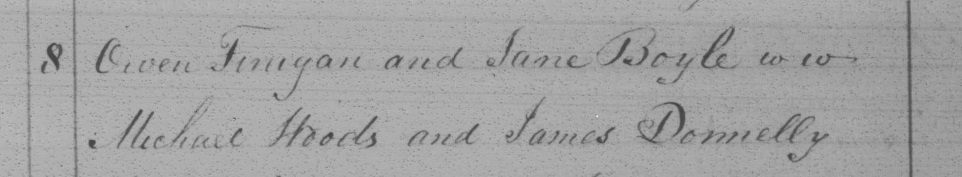 8 Owen Finigan and Jane Boyle w w
Michael Woods and James Donnelly